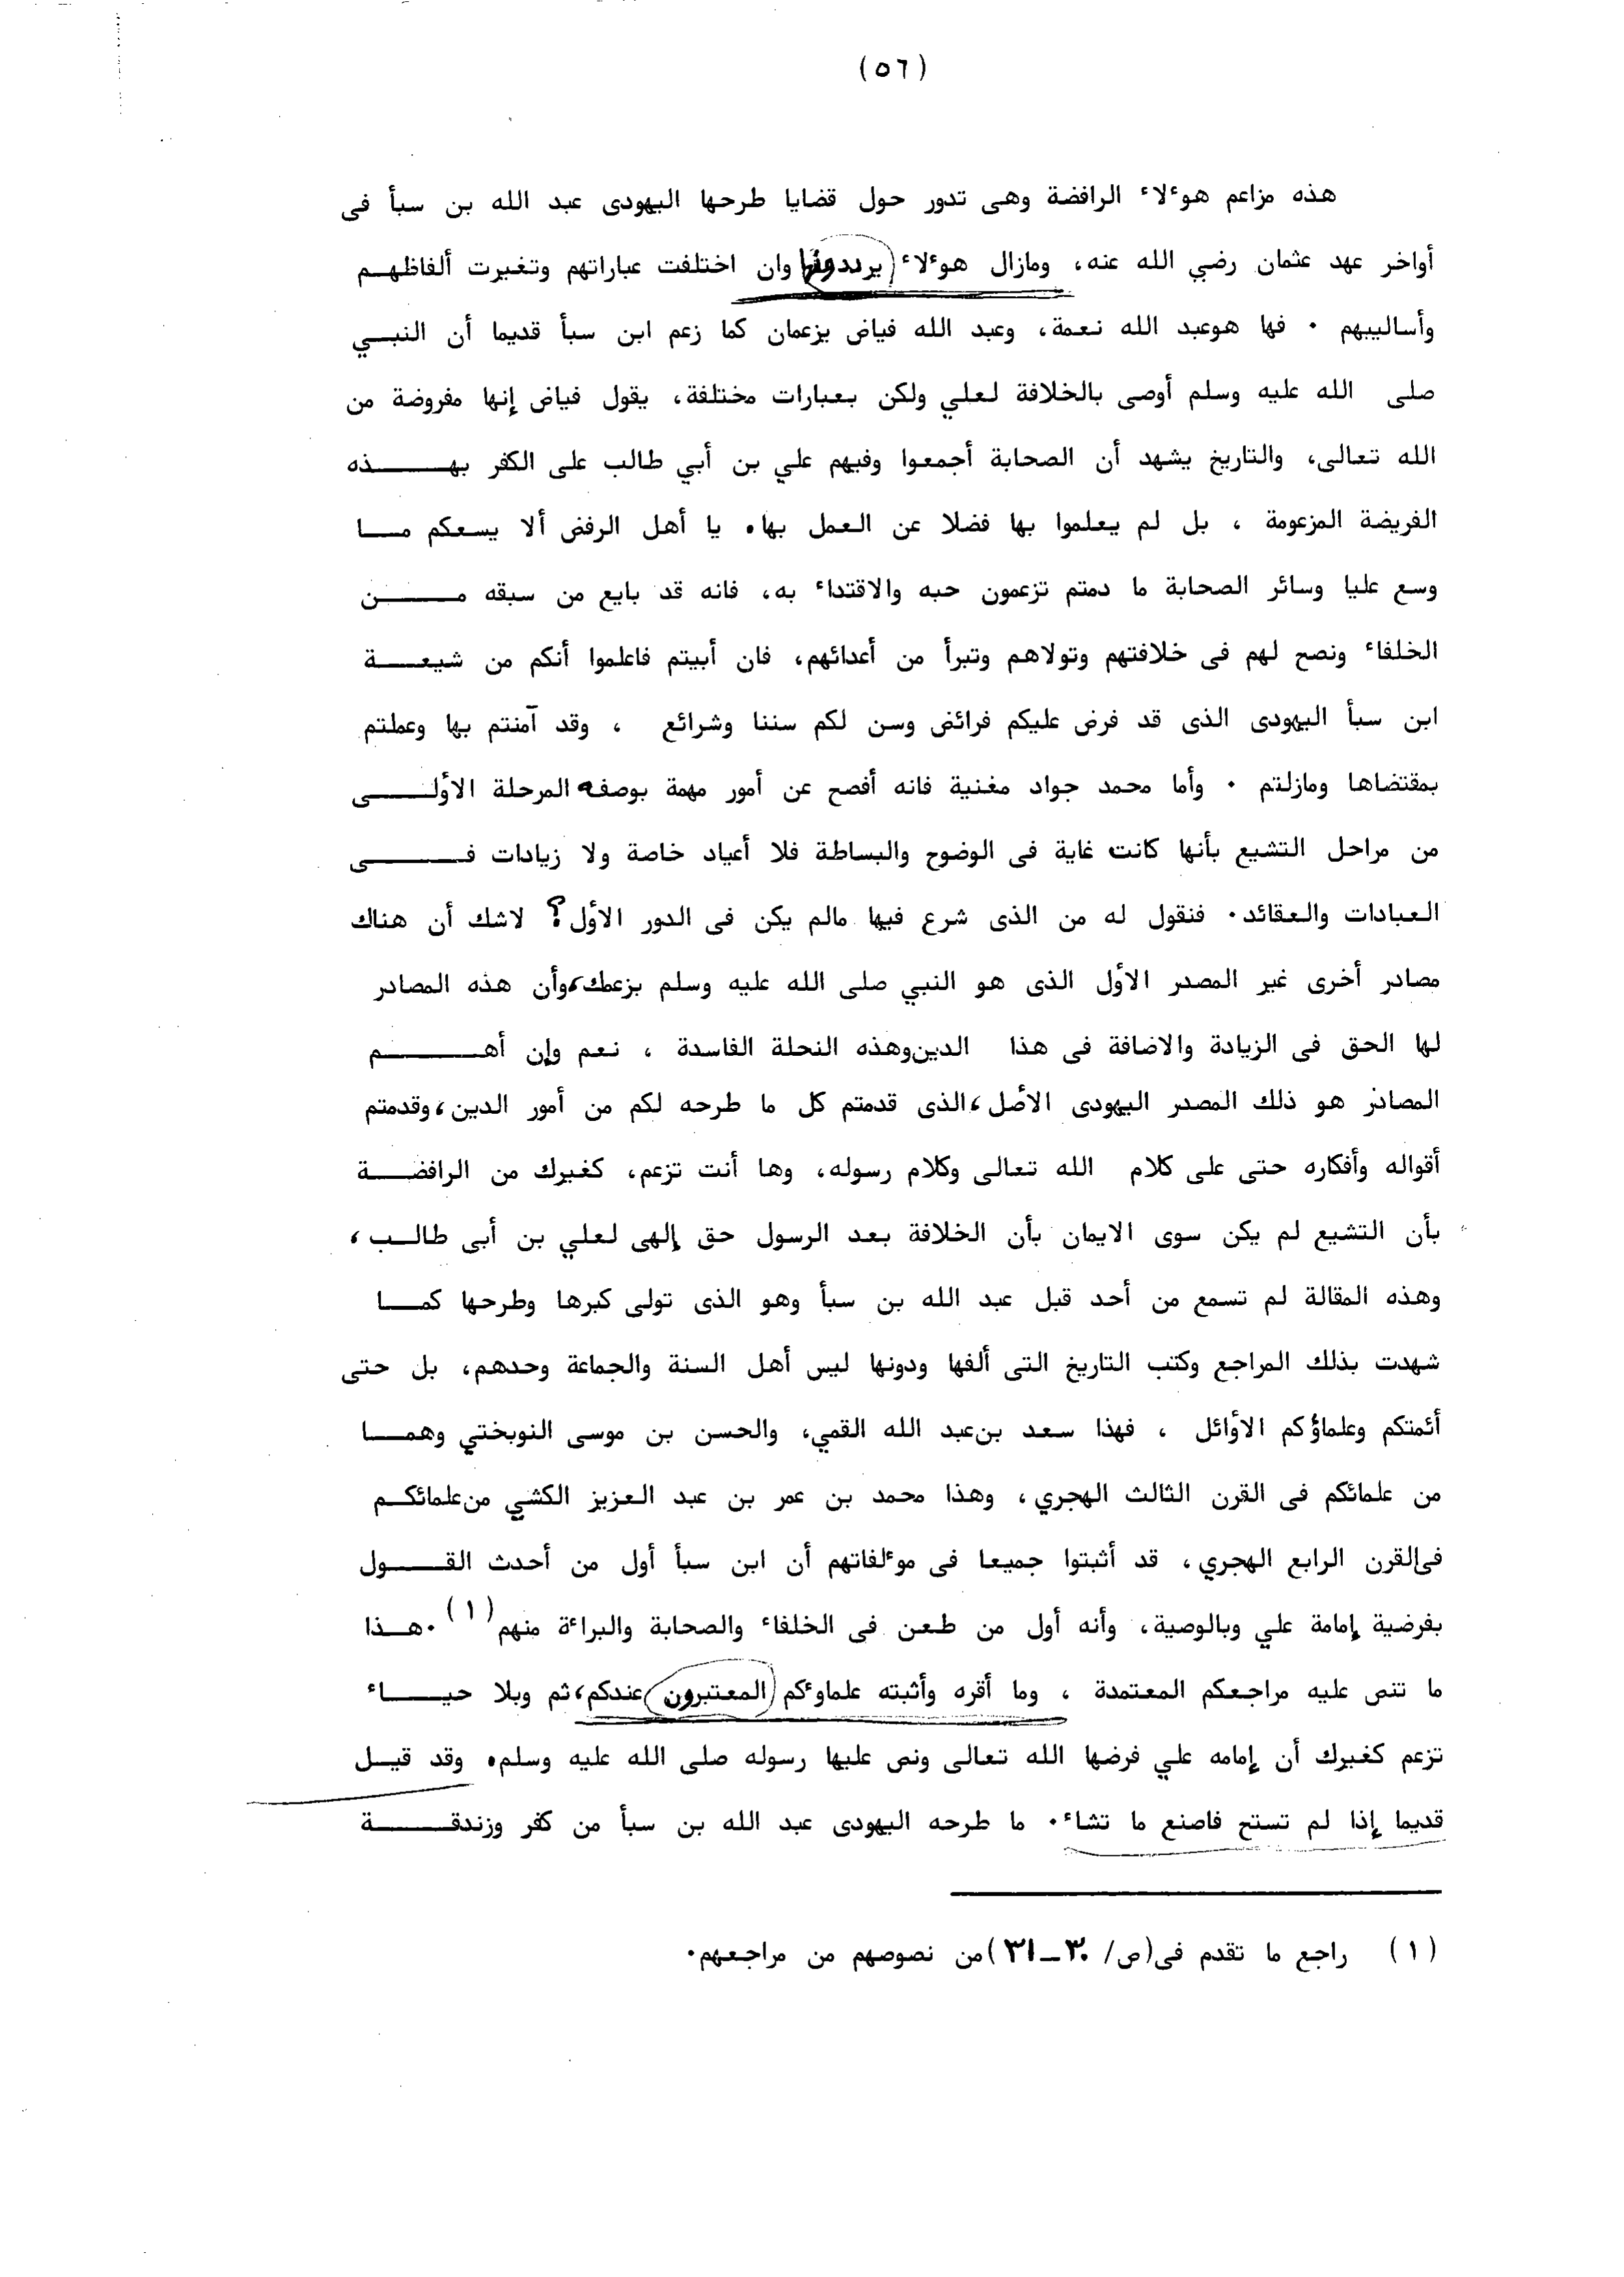 (٥٦)
هذه مزاعم هوٴلاٴ الرافضة وهى تدور حول قضايا طرحها اليهودى عبد الله بن سبأ فى
أواخر عهد عثمان رضي الله عنه، ومازال هوٴلاٴ (يرددونها) وان اختلفت عباراتهم وتغيرت ألفاظهم
وأساليبهم ٠ فها هوعبد الله نعمة، وعبد الله فياض يزعمان كما زعم ابن سبأ قديما أن النبي
صلى الله عليه وسلم أوصى بالخلافة لعلي ولكن بعبارات مختلفة، يقول فياض إنها مفروضة من
الله تعالى، والتاريخ يشهد أن الصحابة أجمعوا وفيهم علي بن أبي طالب على الكفر بهذه
الفريضة المزعومة ، بل لم يعلموا بها فضلا عن العمل بها٠ يا أهل الرفض ألا يسعكم ما
وسع عليا وسائر الصحابة ما دمتم تزعمون حبه والاقتداٴ به، فانه قد بايع من سبقه من
الخلفاٴ ونصح لهم فى خلافتهم وتولاهم وتبرأ من أعدائهم، فان أبيتم فاعلموا أنكم من شيعة
ابن سبأ اليهودى الذى قد فرض عليكم فرائض وسن لكم سننا وشرائع ، وقد آمنتم بها وعملتم
بمقتضاها ومازلتم ٠ وأما محمد جواد مغنية فانه أفصح عن أمور مهمة بوصفه المرحلة الأولى
من مراحل التشيع بأنها كانت غاية فى الوضوح والبساطة فلا أعياد خاصة ولا زيادات فى
العبادات والعقائد٠ فنقول له من الذى شرع فيها مالم يكن فى الدور الأول؟ لاشك أن هناك
مصادر أخرى غير المصدر الأول الذى هو النبي صلى الله عليه وسلم بزعمك،وأن هذه المصادر
لها الحق فى الزيادة والاضافة فى هذا الدين وهذه النحلة الفاسدة ، نعم وإن أهم
المصادر هو ذلك المصدر اليهودى الأصل،الذى قدمتم كل ما طرحه لكم من أمور الدين،وقدمتم
أقواله وأفكاره حتى على كلام الله تعالى وكلام رسوله، وها أنت تزعم، كغيرك من الرافضة
بأن التشيع لم يكن سوى الايمان بأن الخلافة بعد الرسول حق إلهى لعلي بن أبى طالب،
وهذه المقالة لم تسمع من أحد قبل عبد الله بن سبأ وهو الذى تولى كبرها وطرحها كما
شهدت بذلك المراجع وكتب التاريخ التى ألفها ودونها ليس أهل السنة والجماعة وحدهم، بل حتى
أئمتكم وعلماؤكم الأوائل ، فهذا سعد بن عبد الله القمي، والحسن بن موسى النوبختي وهما
من علمائكم فى القرن الثالث الهجري، وهذا محمد بن عمر بن عبد العزيز الكشي من علمائكم
فى القرن الرابع الهجري، قد أثبتوا جميعا فى موٴلفاتهم أن ابن سبأ أول من أحدث القول
بفرضية إمامة علي وبالوصية، وأنه أول من طعن فى الخلفاٴ والصحابة والبراٴة منهم (١) ٠هذا
ما تنص عليه مراجعكم المعتمدة ، وما أقره وأثبته علماوٴكم (المعتبرون) عندكم،ثم وبلا حياٴ
تزعم كغيرك أن إمامه علي فرضها الله تعالى ونص عليها رسوله صلى الله عليه وسلم٠ وقد قيل
قديما إذا لم تستح فاصنع ما تشاٴ٠ ما طرحه اليهودى عبد الله بن سبأ من كفر وزندقة
(١) راجع ما تقدم فى(ص/ ٣٠-٣١)من نصوصهم من مراجعهم٠